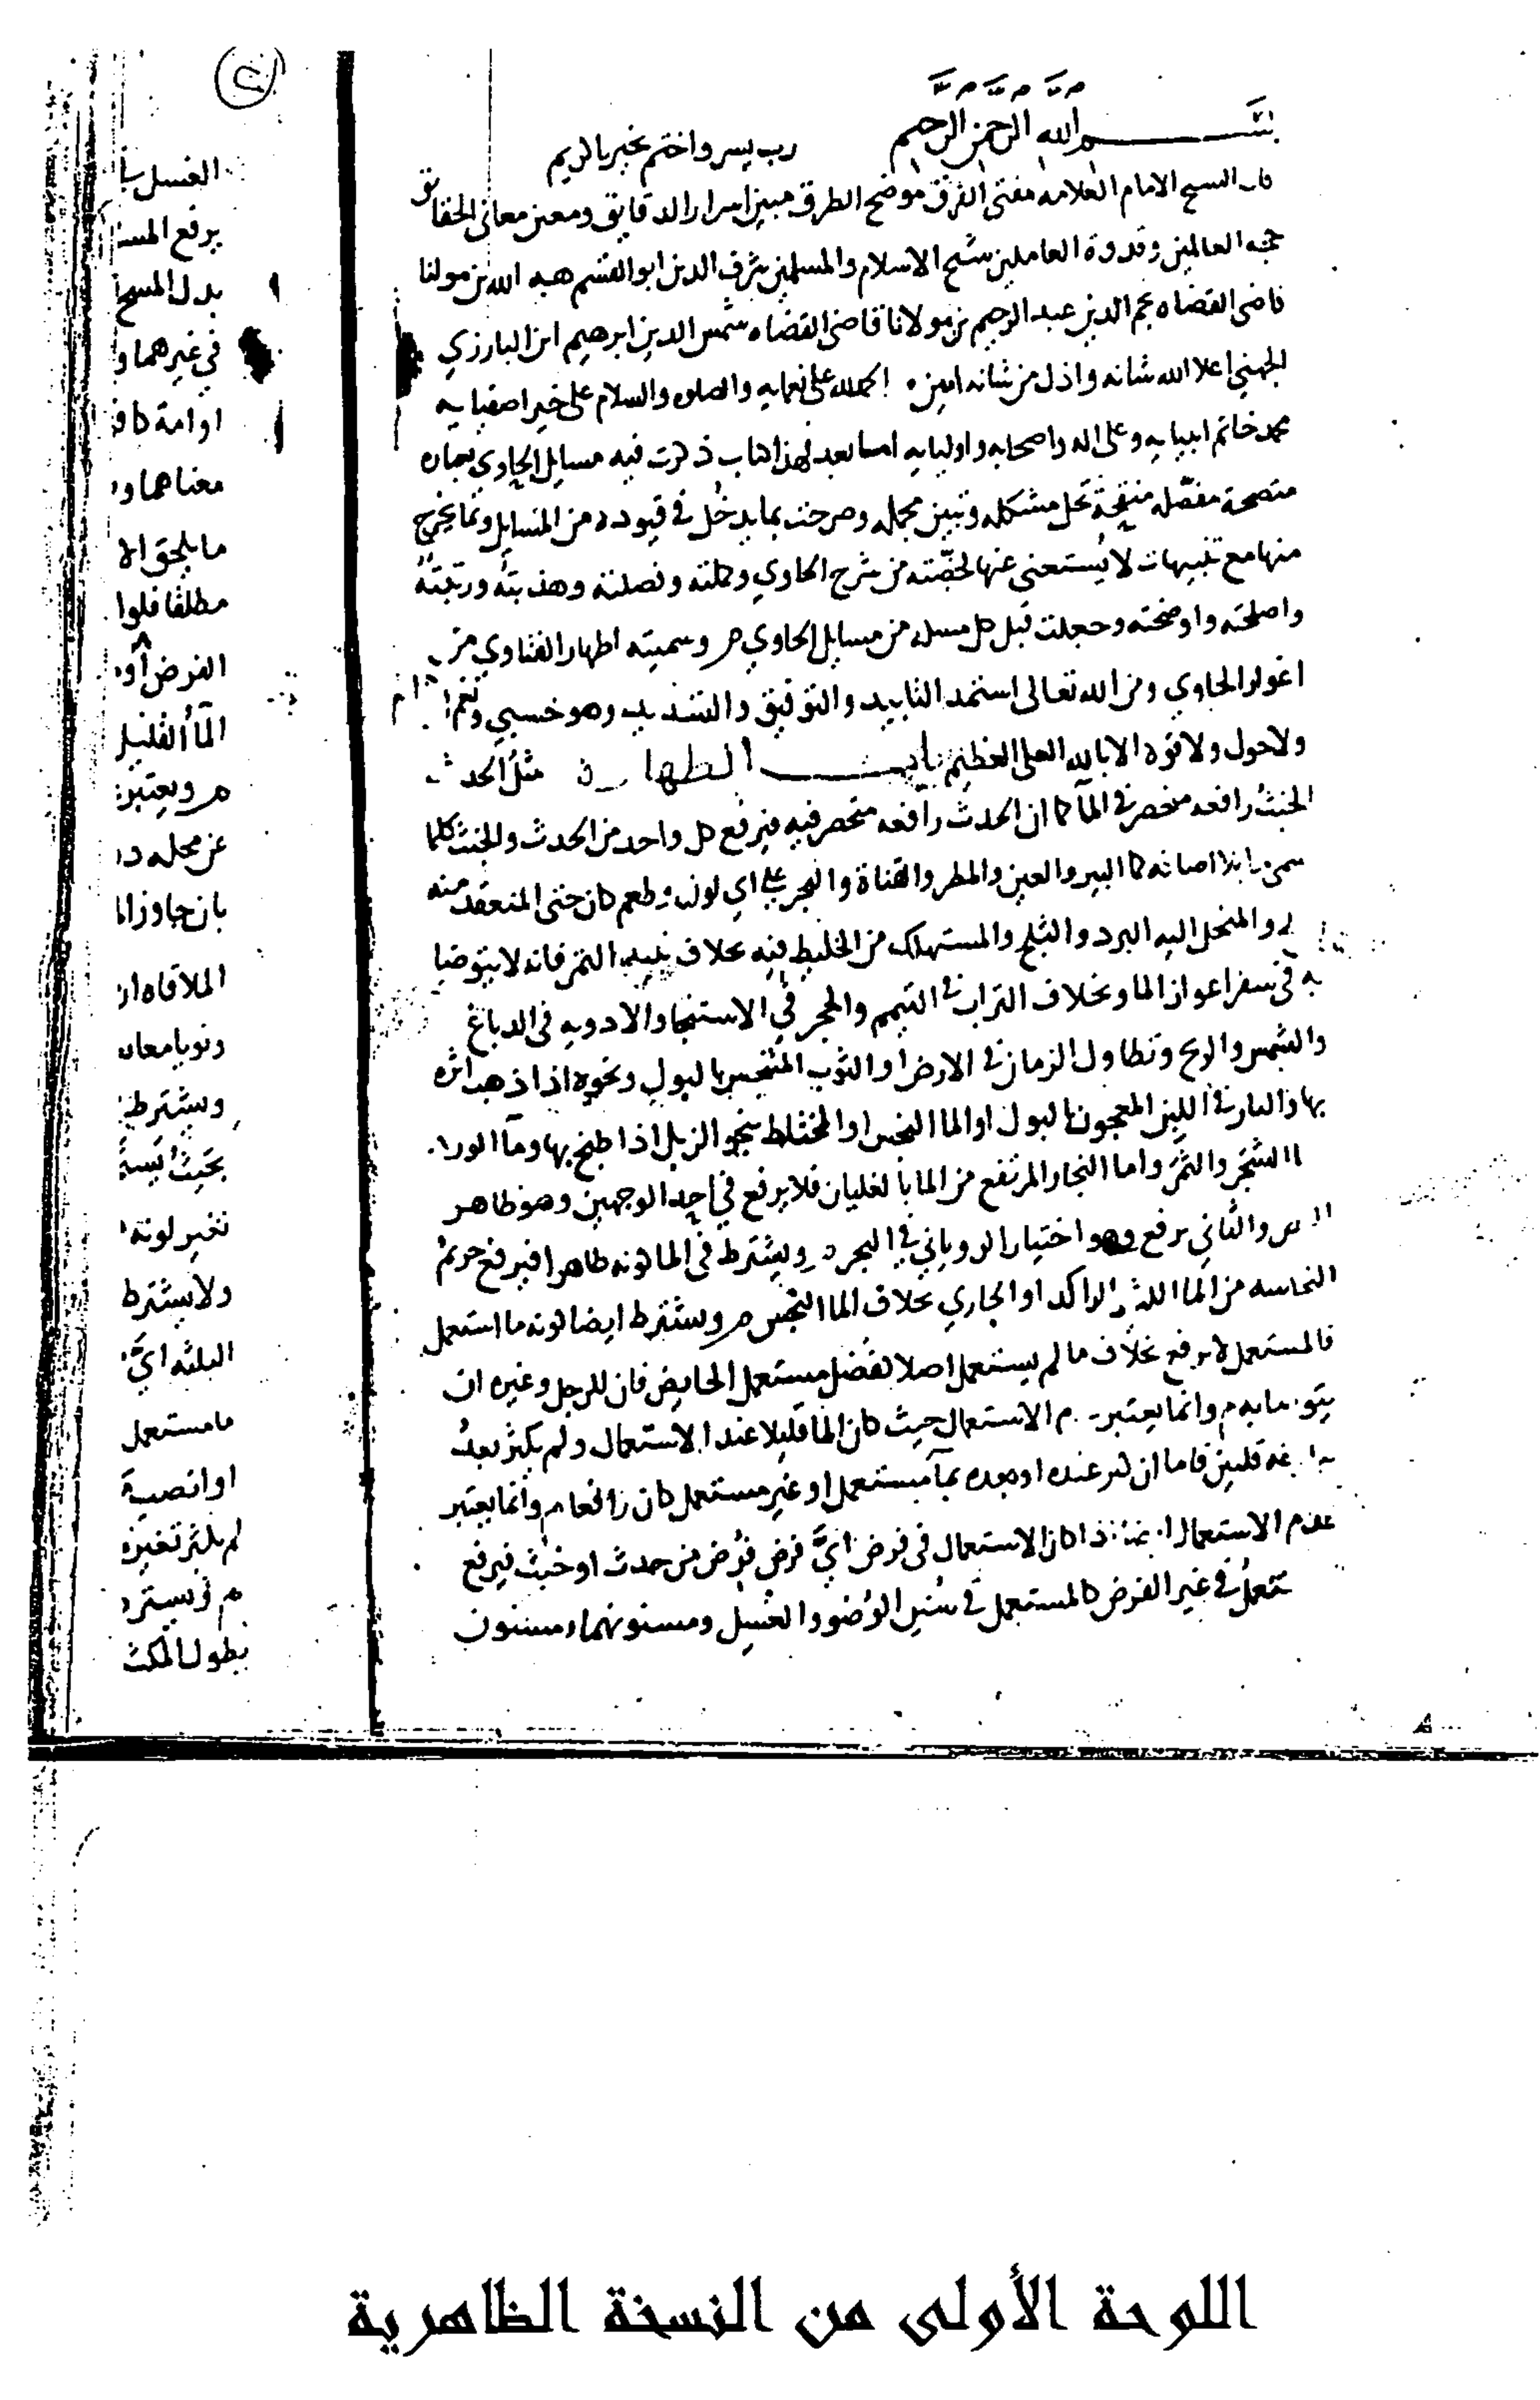 بسم الله الرحمن الرحيم رب يسر واختم بخير يا كريم
قال الشيخ الامام العلامه مفتى الفرق موضح الطرق مبين اسرار الدقايق ومعين معانى الحقائق
حجه العالمين وقدوة العاملين شيخ الاسلام والمسلمين شرف الدين ابو القسم هبه الله بن مولنا
قاضى القضاه نجم الدين عبد الرحيم بن مولانا قاضى القضاه شمس الدين ابرهيم ابن البارزي
الجهني اعلا الله شانه واذل من شانه امين الحمد لله على نعمايه والصلوه والسلام على خير اصفيايه
محمد خاتم انبيايه وعلى اله واصحابه واوليايه اما بعد فهذا كتاب ذكرت فيه مسايل الحاوي بعباره
متضحة مفصله منقحة تحل مشكله وتبين مجمله وصرحت بما يدخل في قيوده من المسايل وبما يخرج
منها مع تنبيهات لا يستغنى عنها لخصته من شرح الحاوي وكملته وفصلته وهذبته ورتبته
واصلحته واوضحته وجعلت قبل كل مسله من مسايل الحاوي م وسميته اظهار الفتاوي من
اغوار الحاوي ومن الله تعالى استمد التاييد والتوفيق والتسديد وهو حسبي ونعم
ولا حول ولا قوه الا بالله العلى العظيم باب الطهارة مثل الحدث
الخبث رافعه منحصر في المآ كما ان الحدث رافعه منحصر فيه فيرفع كل واحد من الحدث والخبث كلما
سمى ما بلا اضافه كما البير والعين والمطر والقناة والبحر على اي لون وطعم كان حتى المنعقد منه
والمنحل اليه البرد والثلج والمستهلك من الخليط فيه بخلاف نبيذ التمر فانه لا يتوضا
به فى سفر اعواز الما وبخلاف التراب في التيمم والحجر في الاستنجا والادويه فى الدباغ
والشمس والريح وتطاول الزمان في الارض او الثوب المتنجس بالبول ونحوه اذا ذهب اثره
بها والنار في اللبن المعجون بالبول او الما النجس او المختلط بنحو الزبل اذا طبخ بها وما الورد
الشجر والثمر واما البخار المرتفع من الما بالغليان فلا يرفع في احد الوجهين وهو ظاهر
والثاني يرفع وهو اختيار الروياني في البحر م ويشترط فى الما كونه طاهرا فيرفع
النجاسه من الما الراكد او الجاري بخلاف الما النجس م ويشترط ايضا كونه ما استعمل
فالمستعمل لا يرفع بخلاف ما لم يستعمل اصلا كفضل مستعمل الحايض فان للرجل وغيره ان
به م وانما يعتبر الاستعمال حيث كان الما قليلا عند الاستعمال ولم يكثر بعد
قلتين فاما ان كثر عنده او بعده بمآ مستعمل او غير مستعمل كان رافعا م وانما يعتبر
عدم الاستعمال اذا كان الاستعمال فى فرض ايّ فرض فرض من حدث او خبث فيرفع
في غير الفرض كالمستعمل في سنن الوضو والغسل ومسنونهما ومسنون
الغسل
يرفع
بدل المسح
في غيرهما و
او امة
معناهما و
ما يلحق
مطلقا فلوا
الفرض او
المآ القليل
م ويعتبر
عن محله
بان جاوز
الملاقاه
وثوبا معا
ويشترط
بحيث
تغير لونه
ولا يشترط
الثلثه ايّ
ما مستعمل
او
لم يكثر تغيره
م و
بطول المكث
اللوحة الأولى من النسخة الظاهرية